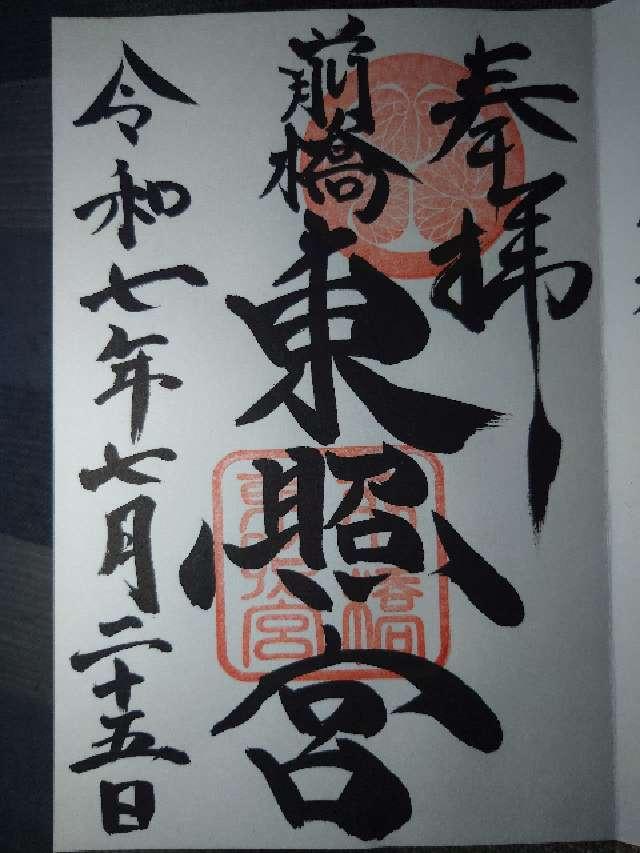 奉拝
前橋
東照宮
前橋
東照宮
令和七年七月二十五日